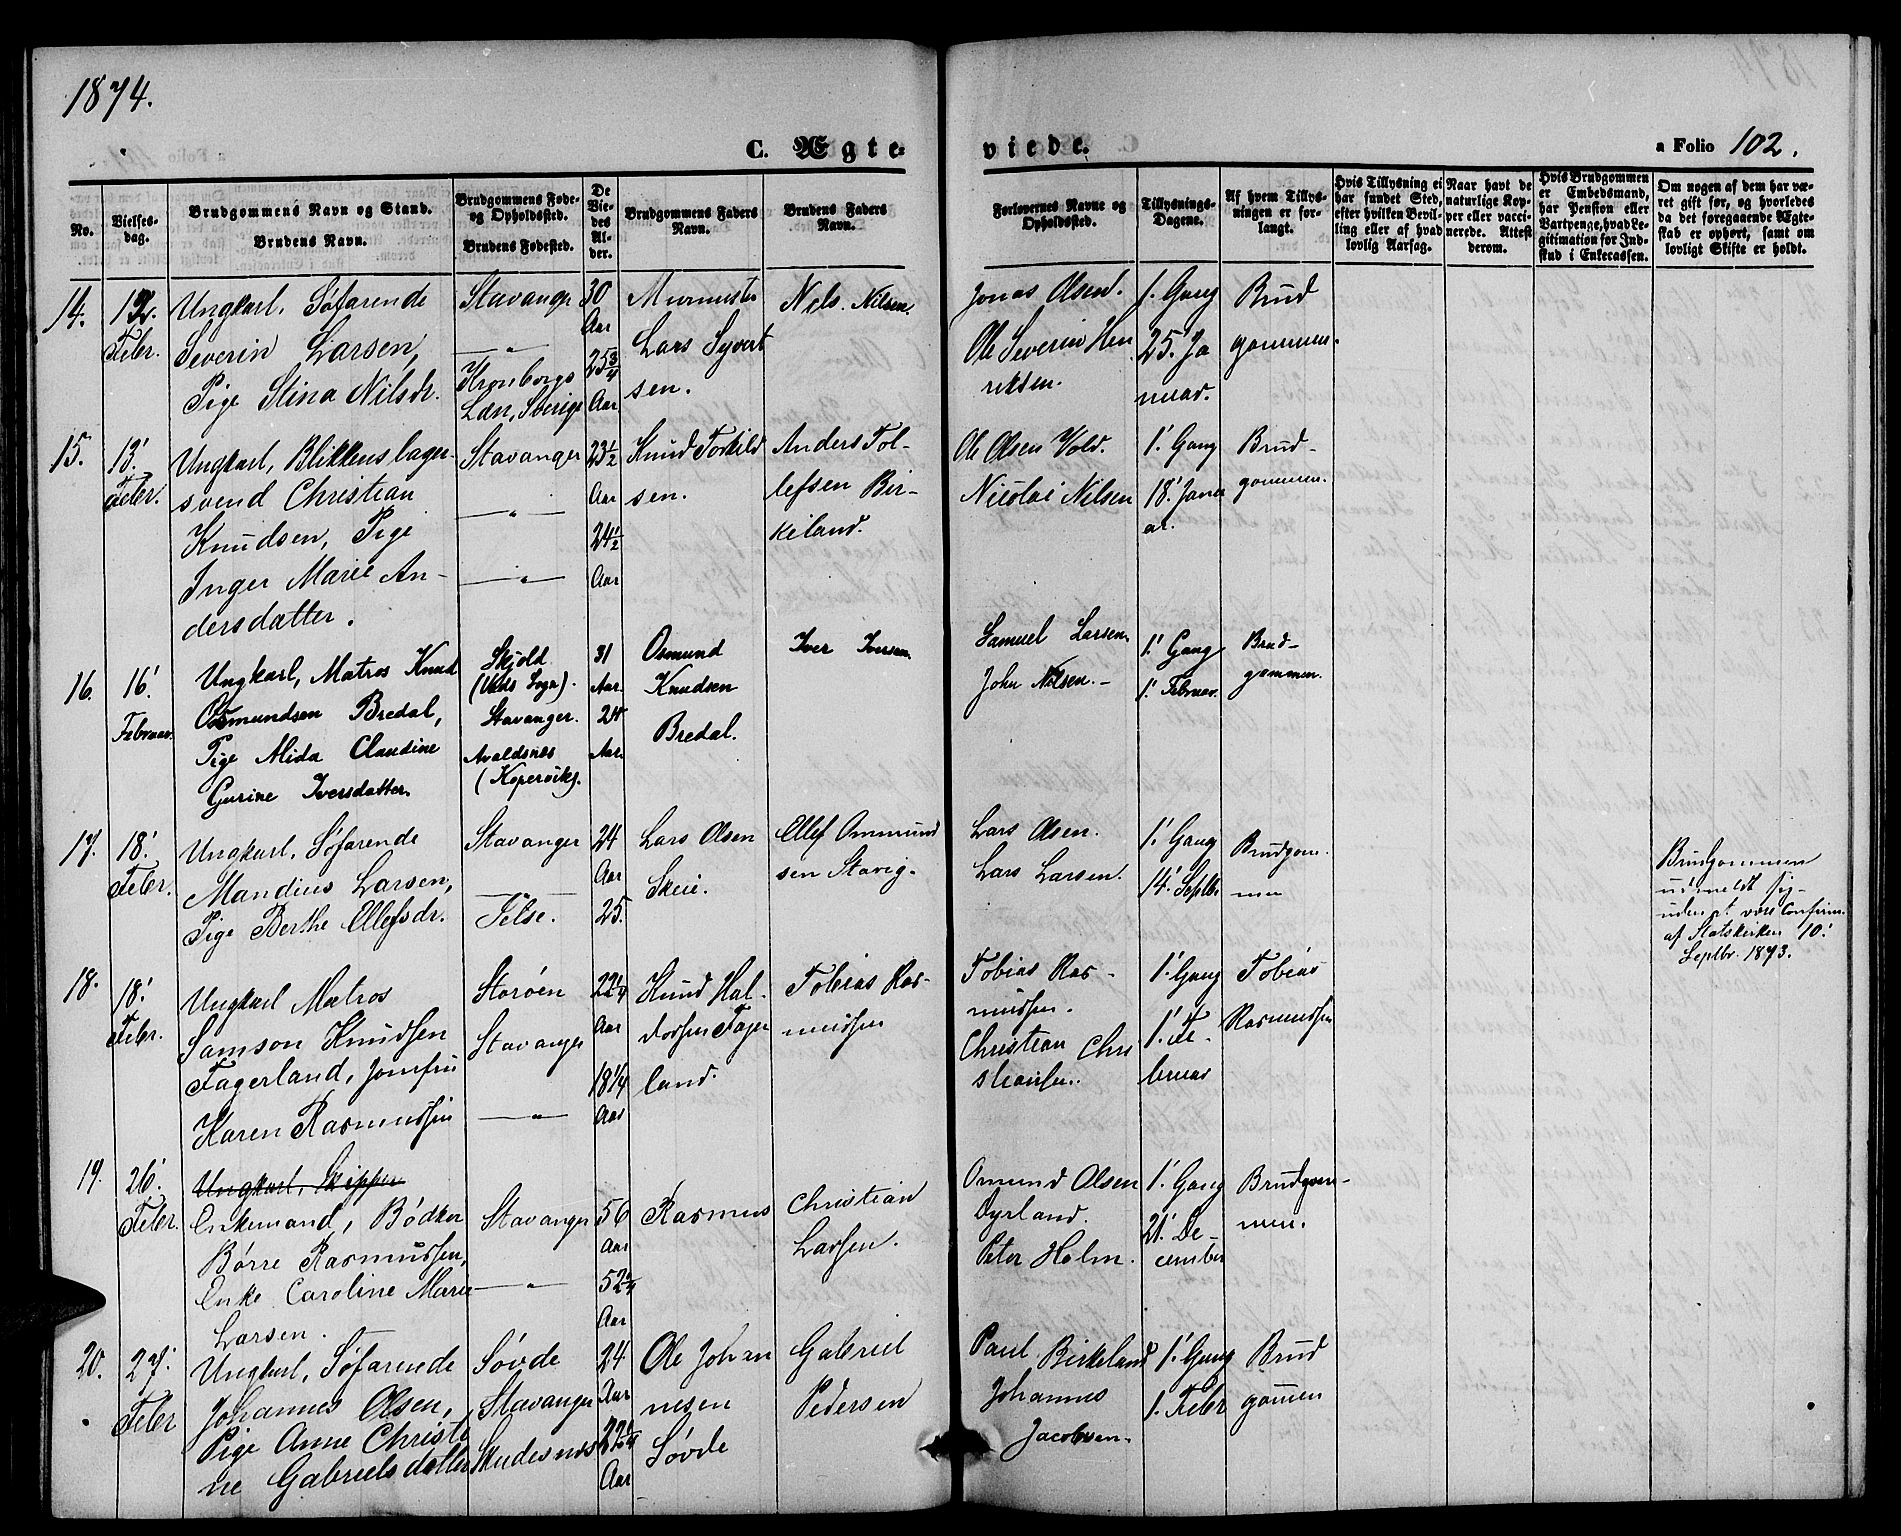 1874.
C. Ægte-
viede.
a Folio 102.
No.
Vielses-dag.
Brudgommens Navn og Stand.
Brudens Navn.
Brudgommens Føde- og Opholdssted.
Brudens Fødested.
De Viedes Alder.
Brudgommens Faders Navn.
Brudens Faders Navn.
Forlovernes Navne og Opholdssted.
Tillysnings-Dagene.
Af hvem Tillysningen er forlangt.
Hvis Tillysning ei har fundet Sted, efter hvilken Bevilling eller af hvad lovlig Aarsag.
Naar havt de naturlige Kopper eller vaccinerede. Attest derom.
Hvis Brudgommen er Embedsmand, har Pension eller Vartpenge, hvad Legitimation for Indskud i Enkecassen.
Om nogen af dem har været gift før, og hvorledes da det foregaaende Ægteskab er ophørt, samt om lovligt Skifte er holdt.
14.
Febr.
Ungkarl, Søfarende
Severin Larsen,
Pige Stina Nilsdr.
Stavanger
— " —
Kronborgs
Læn, Sverige
30
Aar
25 3/4
Aar
Murmester
Lars Syvert
sen.
Nels. Nilsen.
Jonas Olsen.
Ole Severin Hen
riksen.
1. Gang
25. Ja
nuar.
Brud
gommen.
15.
13.
Febr.
Ungkarl, Blikkenslager-
svend Christian
Knudsen, Pige
Inger Marie An-
dersdatter.
Stavanger
— " —
— " —
23 1/2
Aar
24 1/2
Aar
Knud Torkild
sen.
Anders Tol-
lefsen Bir-
keland.
Ole Olsen Vold.
Nicolai Nilsen
1. Gang
18. Janu
ar.
Brud-
gommen.
16.
16.
Februar.
Ungkarl, Matros Knud
Osmundsen Bredal,
Pige Alida Claudine
Gurine Iversdatter.
Skjold
(Vats Sogn).
Stavanger.
Avaldsnes
(Kopervik).
31
Aar.
24
Aar.
Osmund
Knudsen
Bredal.
Iver Iversen.
Samuel Larsen.
John Nilsen. -
1. Gang
1. Februar.
Brud-
gommen.
17.
18.
Febr.
Ungkarl, Søfarende
Mandius Larsen,
Pige Berthe Ellefsdr.
Stavanger
— —
Jelse.
24
Aar
25.
Lars Olsen
Skeie.
Ellef Ommund
sen Stavig.
Lars Olsen.
Lars Larsen.
1. Gang
14. Septbr
Brudgom
men
Brudgommen
udmeldt sig
uden at være Confirm.
af Statskirken 10.
Septbr. 1873.
18.
18.
Febr.
Ungkarl Matros
Samson Knudsen
Fagerland, Jomfru
Karen Rasmussen
Storøen
Stavanger
— " —
22 1/4
Aar
18 1/4
Aar
Knud Hal-
dorsen Fager
land.
Tobias Ras-
mussen
Tobias Ras-
mussen.
Christian Chri
stiansen.
1. Gang
1. Fe-
bruar
Tobias
Rasmussen
19.
26.
Febr.
Ungkarl, Skipper
Enkemand, Bødker
Børre Rasmussen,
Enke Caroline Marie
Larsen.
Stavanger
— " —
56
Aar
52 3/4
Aar
Rasmus
Christian
Larsen.
Omund Olsen
Dyrland.
Peter Holm.
1. Gang
21. De-
cember
Brudgom-
men.
20.
27.
Febr
Ungkarl, Søfarende
Johannes Olsen,
Pige Anne Christi
ne Gabrielsdatter
Søvde
Stavanger
Skudesnes
24
Aar
22 1/4
Aar
Ole Johan
nesen
Søvde
Gabriel
Pedersen
Paul Birkeland
Johannes
Jacobsen.
1. Gang
1. Febr
Brud
gommen